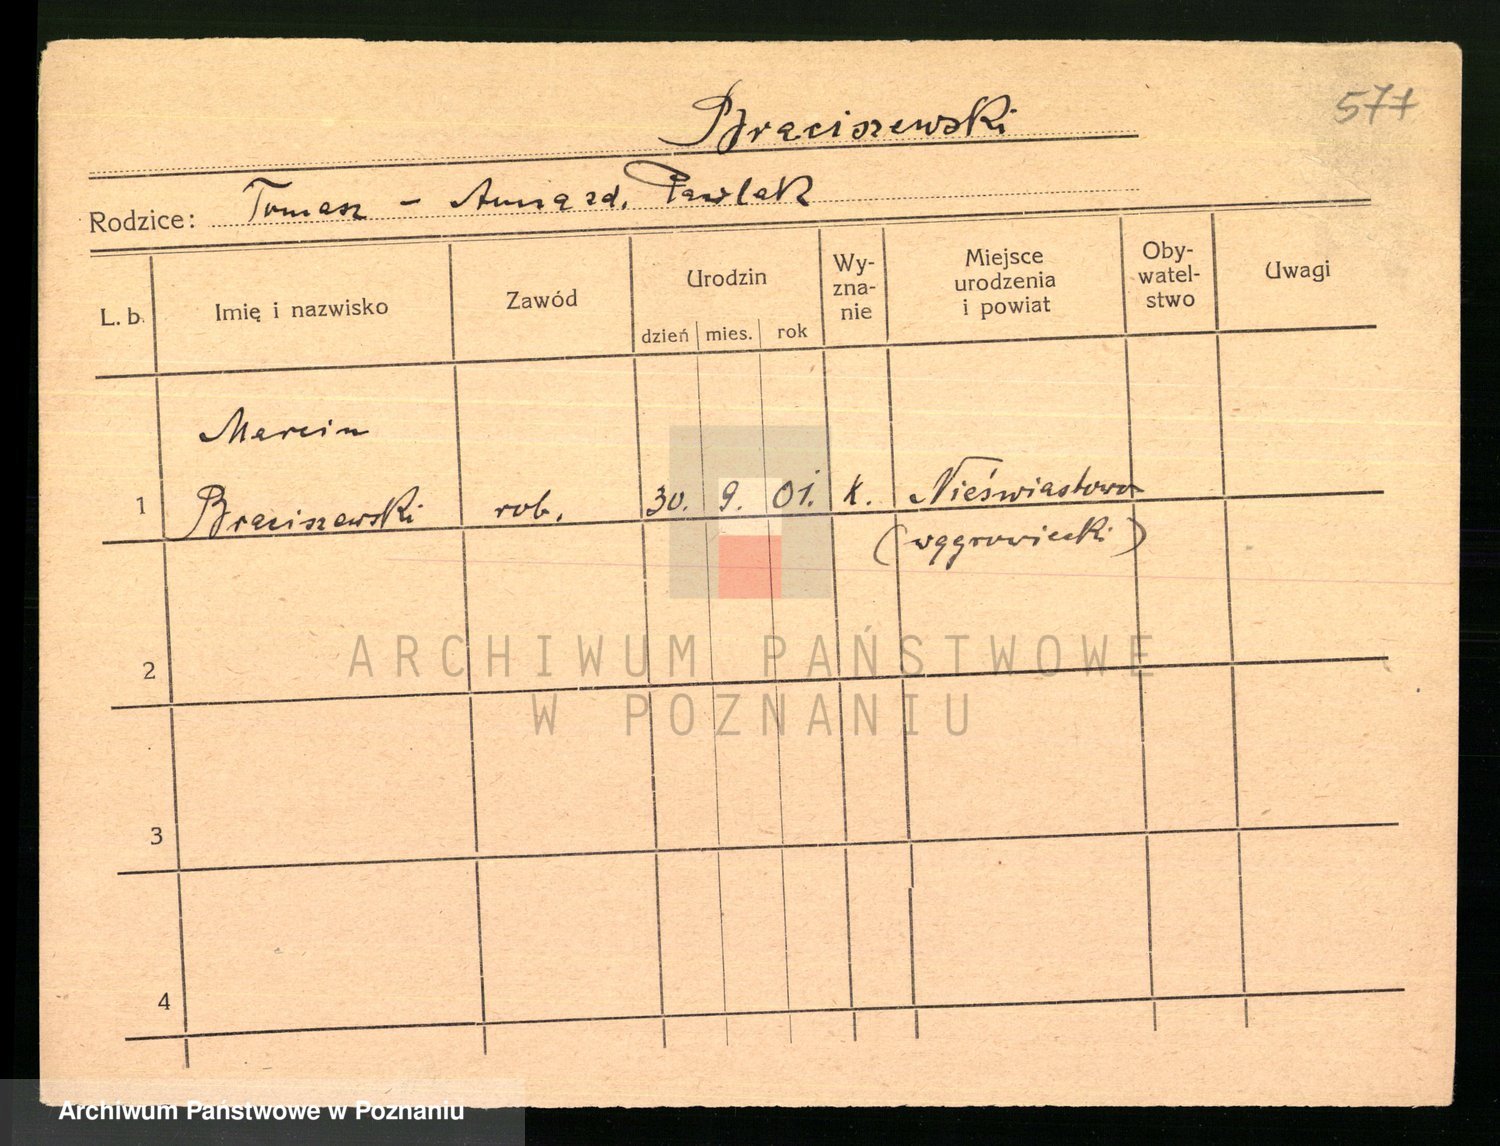 577
Braciszewski
Rodzice: Tomasz – Anna zd. Pawlak
L. b.
Imię i nazwisko
Zawód
Urodzin
dzień
mies.
rok
Wy-
zna-
nie
Miejsce
urodzenia
i powiat
Oby-
watel-
stwo
Uwagi
Marcin
1 Braciszewski rob. 30. 9. 01. k. Nieświastowo
(wągrowiecki)
2
3
4
ARCHIWUM PAŃSTWOWE
W POZNANIU
Archiwum Państwowe w Poznaniu